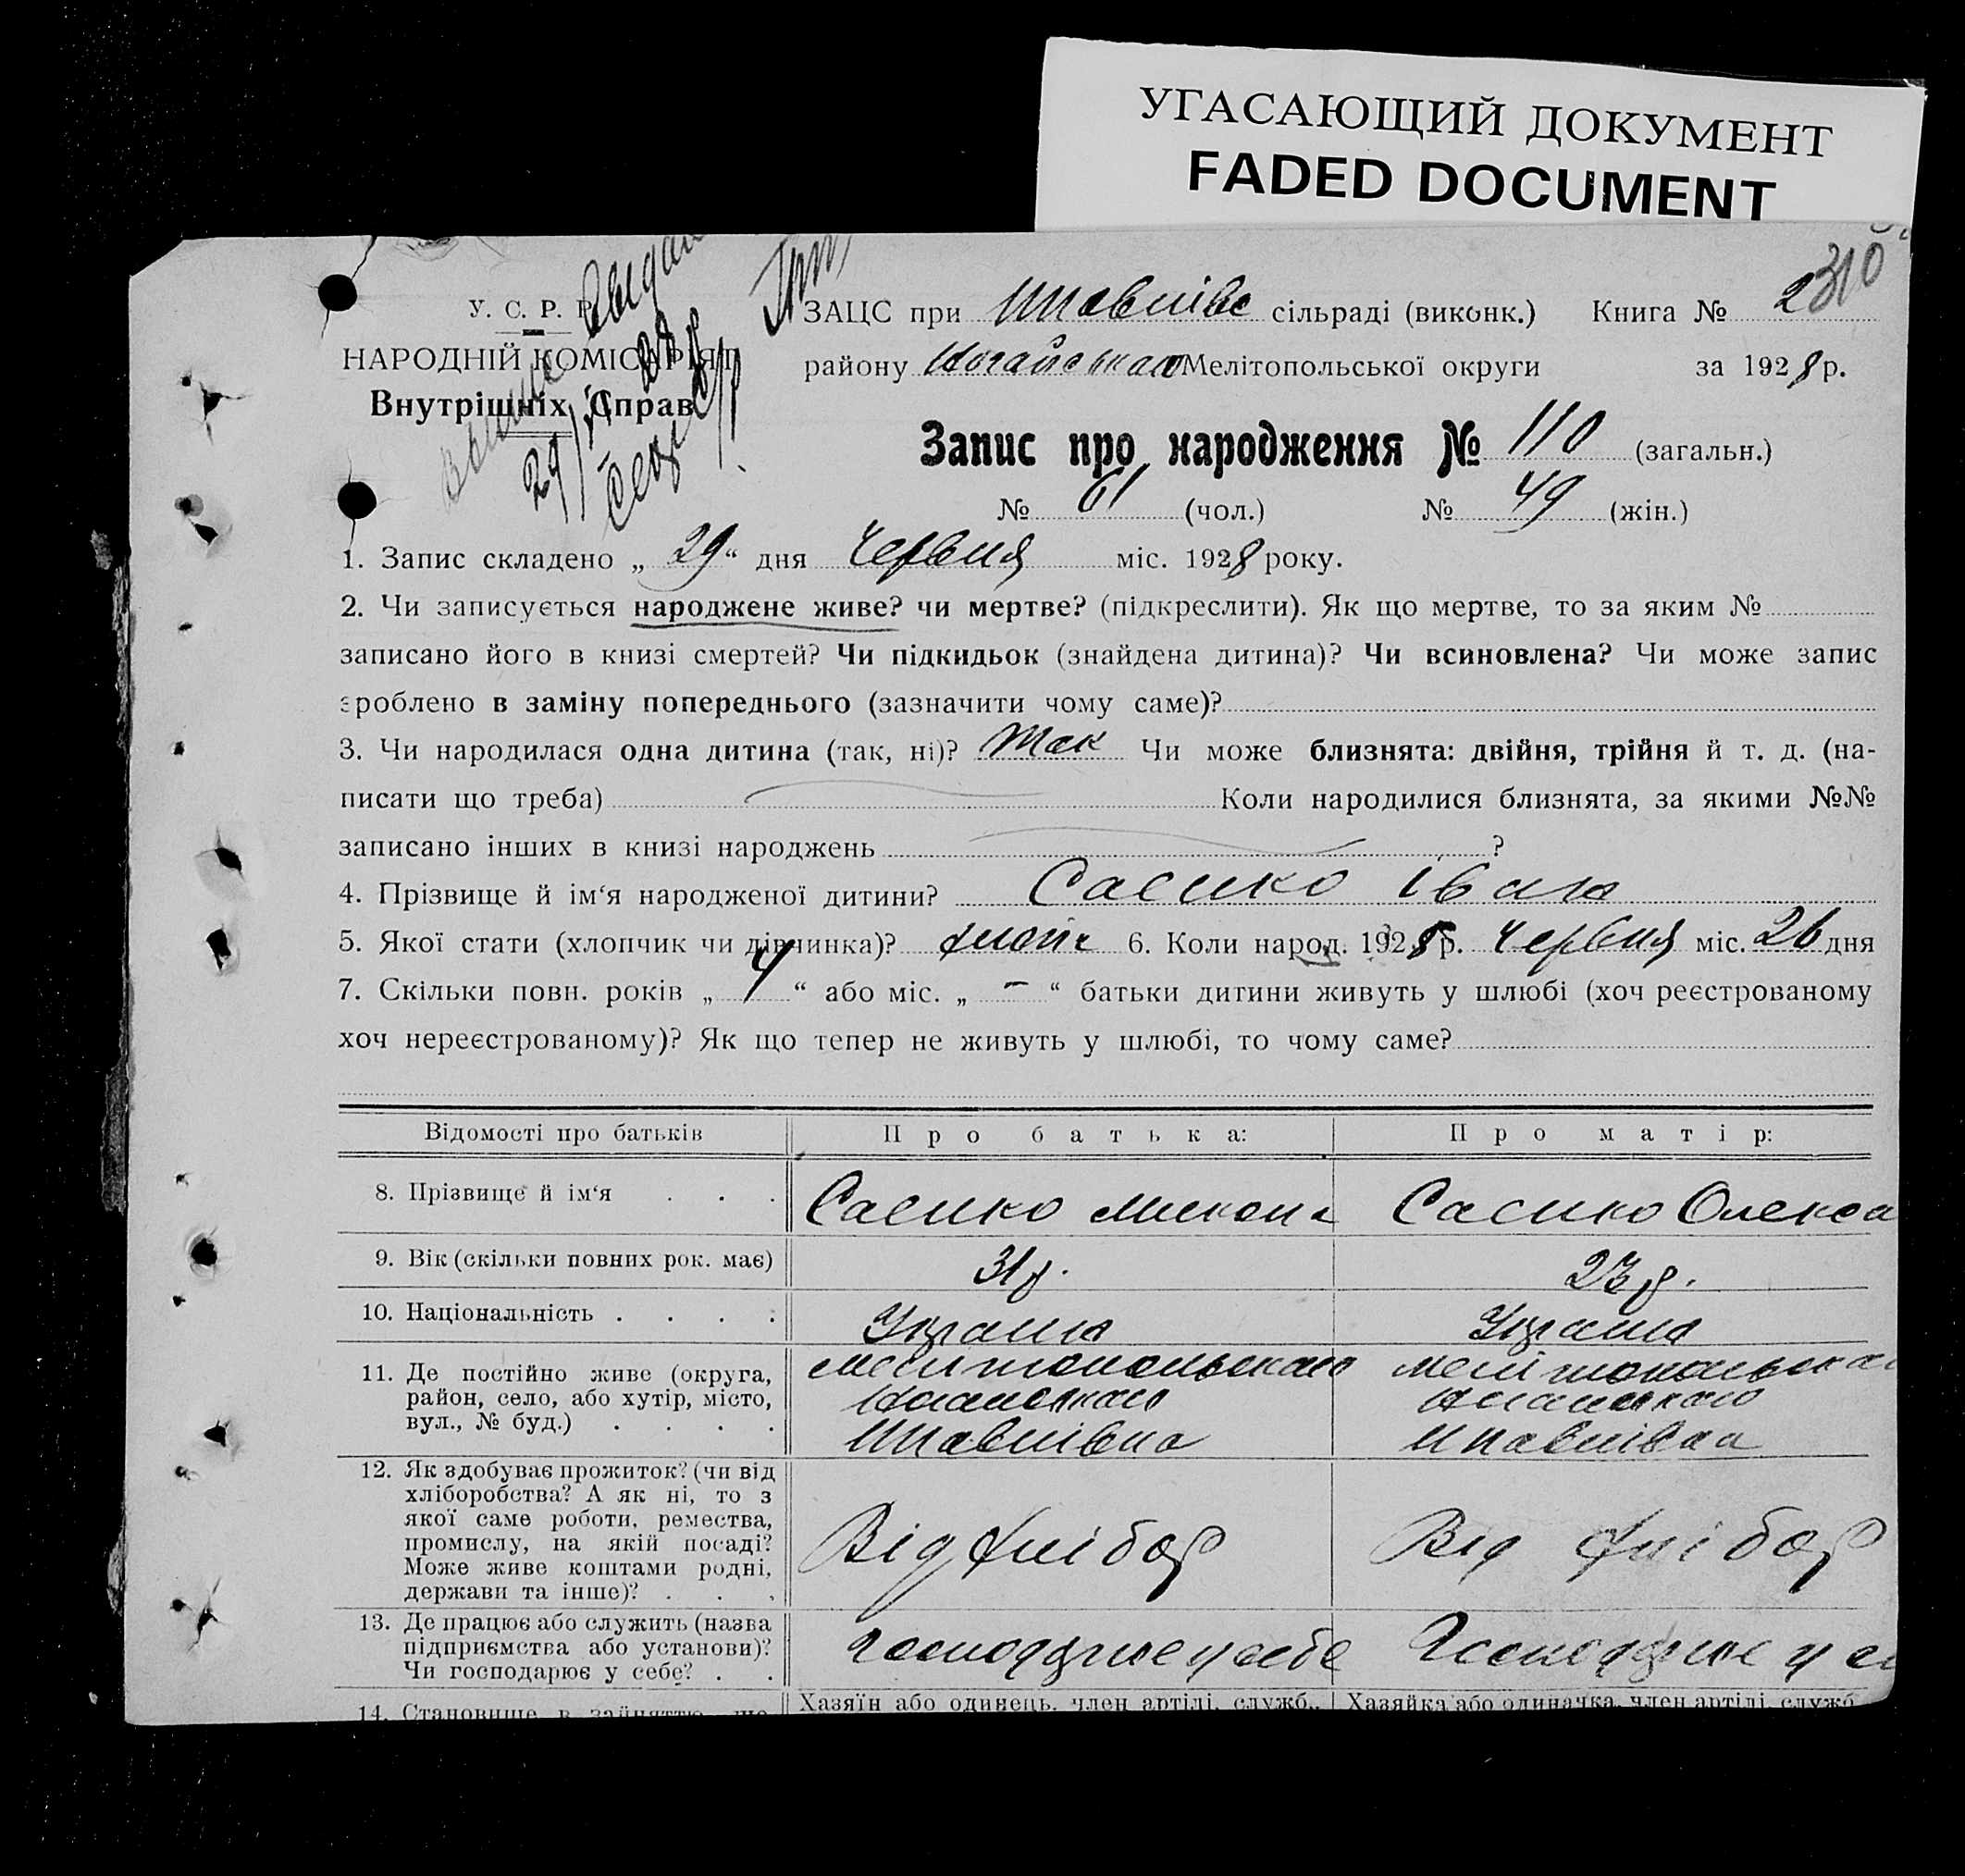 УГАСАЮЩИЙ ДОКУМЕНТ
FADED DOCUMENT
310
У. С. Р. Р.
НАРОДНІЙ КОМІСАРІЯТ
Внутрішніх Справ
29/VI 28
ЗАЦС при сільраді (виконк.) Книга № 2
району Мелітопольської округи за 1928 р.
Запис про народження № 110 (загальн.)
№ 61 (чол.) № 49 (жін.)
1. Запис складено „ 29 “ дня Червня міс. 1928 року.
2. Чи записується народжене живе? чи мертве? (підкреслити). Як що мертве, то за яким №
записано його в книзі смертей? Чи підкидьок (знайдена дитина)? Чи всиновлена? Чи може запис
зроблено в заміну попереднього (зазначити чому саме)?
3. Чи народилася одна дитина (так, ні)? Так Чи може близнята: двійня, трійня й т. д. (на-
писати що треба) Коли народилися близнята, за якими №№
записано інших в книзі народжень ?
4. Прізвище й ім‘я народженої дитини? Саєнко Іван
5. Якої стати (хлопчик чи дівчинка)? хлопч 6. Коли народ. 1928 р. Червня міс. 26 дня
7. Скільки повн. років „ 4 “ або міс. „ – “ батьки дитини живуть у шлюбі (хоч реєстрованому
хоч нереєстрованому)? Як що тепер не живуть у шлюбі, то чому саме?
Відомості про батьків Про батька: Про матір:
8. Прізвище й ім‘я . . . Саєнко Микола Саєнко Олекса
9. Вік (скільки повних рок. має) 31 р. р.
10. Національність . . . . Україн Україн
11. Де постійно живе (округа,
район, село, або хутір, місто,
вул., № буд.) . . . .
12. Як здобуває прожиток? (чи від
хліборобства? А як ні, то з
якої саме роботи, ремества,
промислу, на якій посаді?
Може живе коштами родні,
держави та інше)? . . .
Від хлібор Від хлібор
13. Де працює або служить (назва
підприємства або установи)?
Чи господарює у себе? . .
господарює у себе Господарює у се
14. Становище в зайняттю, що
Хазяїн або одинець, член артілі, служб., Хазяйка або одиначка, член артілі, служб